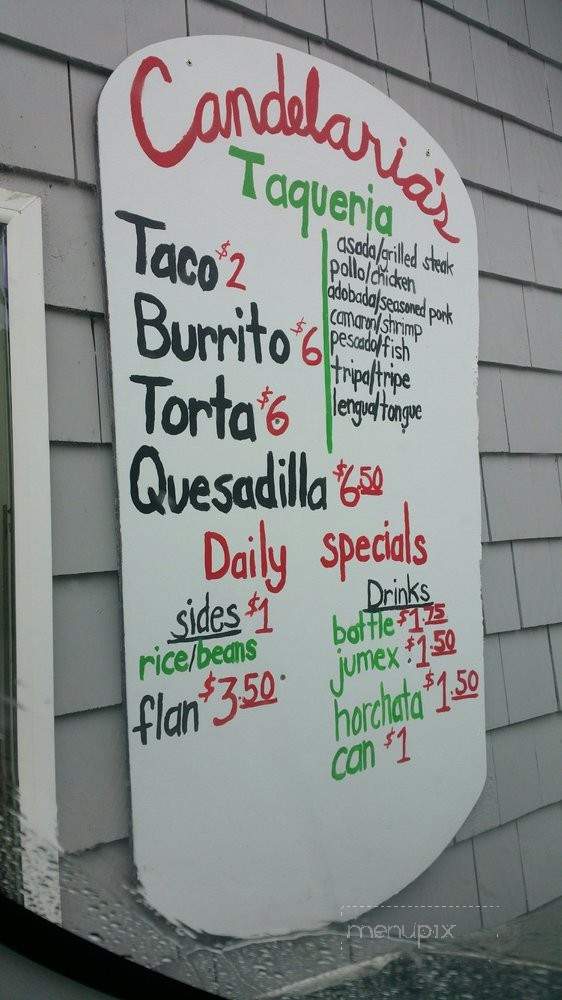 Candelaria's
Taqueria
Taco $2
Burrito $6
Torta $6
Quesadilla $6.50
asada/grilled steak
pollo/chicken
adobada/seasoned pork
camaron/shrimp
pescado/fish
tripa/tripe
lengua/tongue
Daily specials
sides $1
rice/beans
flan $3.50
Drinks
bottle $1.75
jumex $1.50
horchata $1.50
can $1
menupix